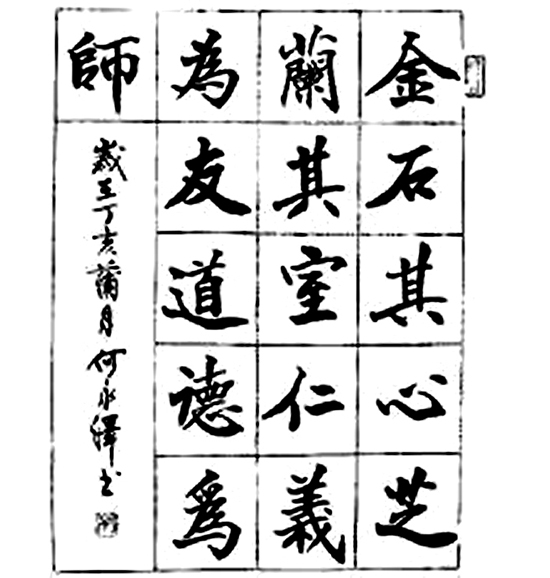 金石其心芝
蘭其室仁義
為友道德為
師
歲在丁亥蒲月何永澤书